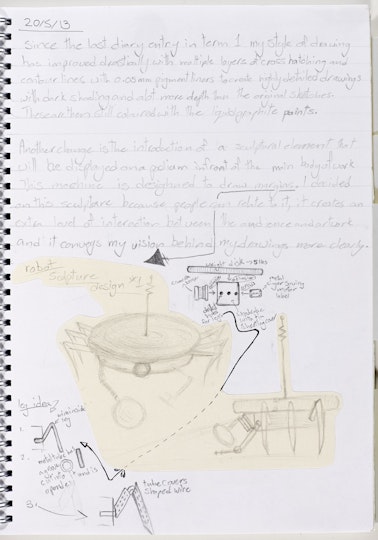 20/5/13
Since the last diary entry in term 1 my style of drawing
has improved drastically with multiple layers of cross hatching and
contour lines with 0.05mm pigment liners to create highly detailed drawings
with dark shading and alot more depth than the original sketches.
These are then still coloured with the liquid graphite paints.
Another change is the introduction of a sculptural element that
will be displayed on a in front of the main body of work
This machine is designed to draw margins. I decided
on this sculpture because people can relate to it, it creates an
extra level of interaction between the audience and artwork
and it conveys my vision behind my drawings more clearly.
robot
Sculpture
design #1
weight disk
metal
leg idea
1.
2.
3.
tube covers
shaped wire